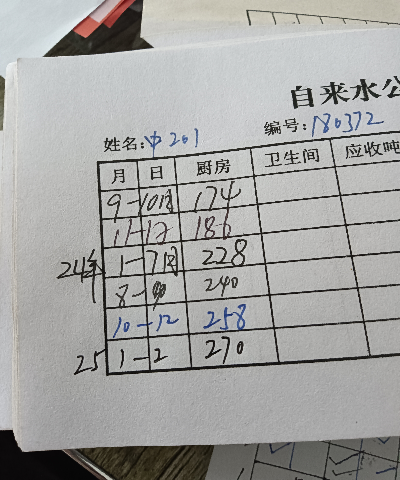 自来水公
姓名:中201 编号:180372
月 日 厨房 卫生间 应收吨
9-10月 174
11-12 186
24年 1-7月 228
8-9 240
10-12 258
25 1-2 270